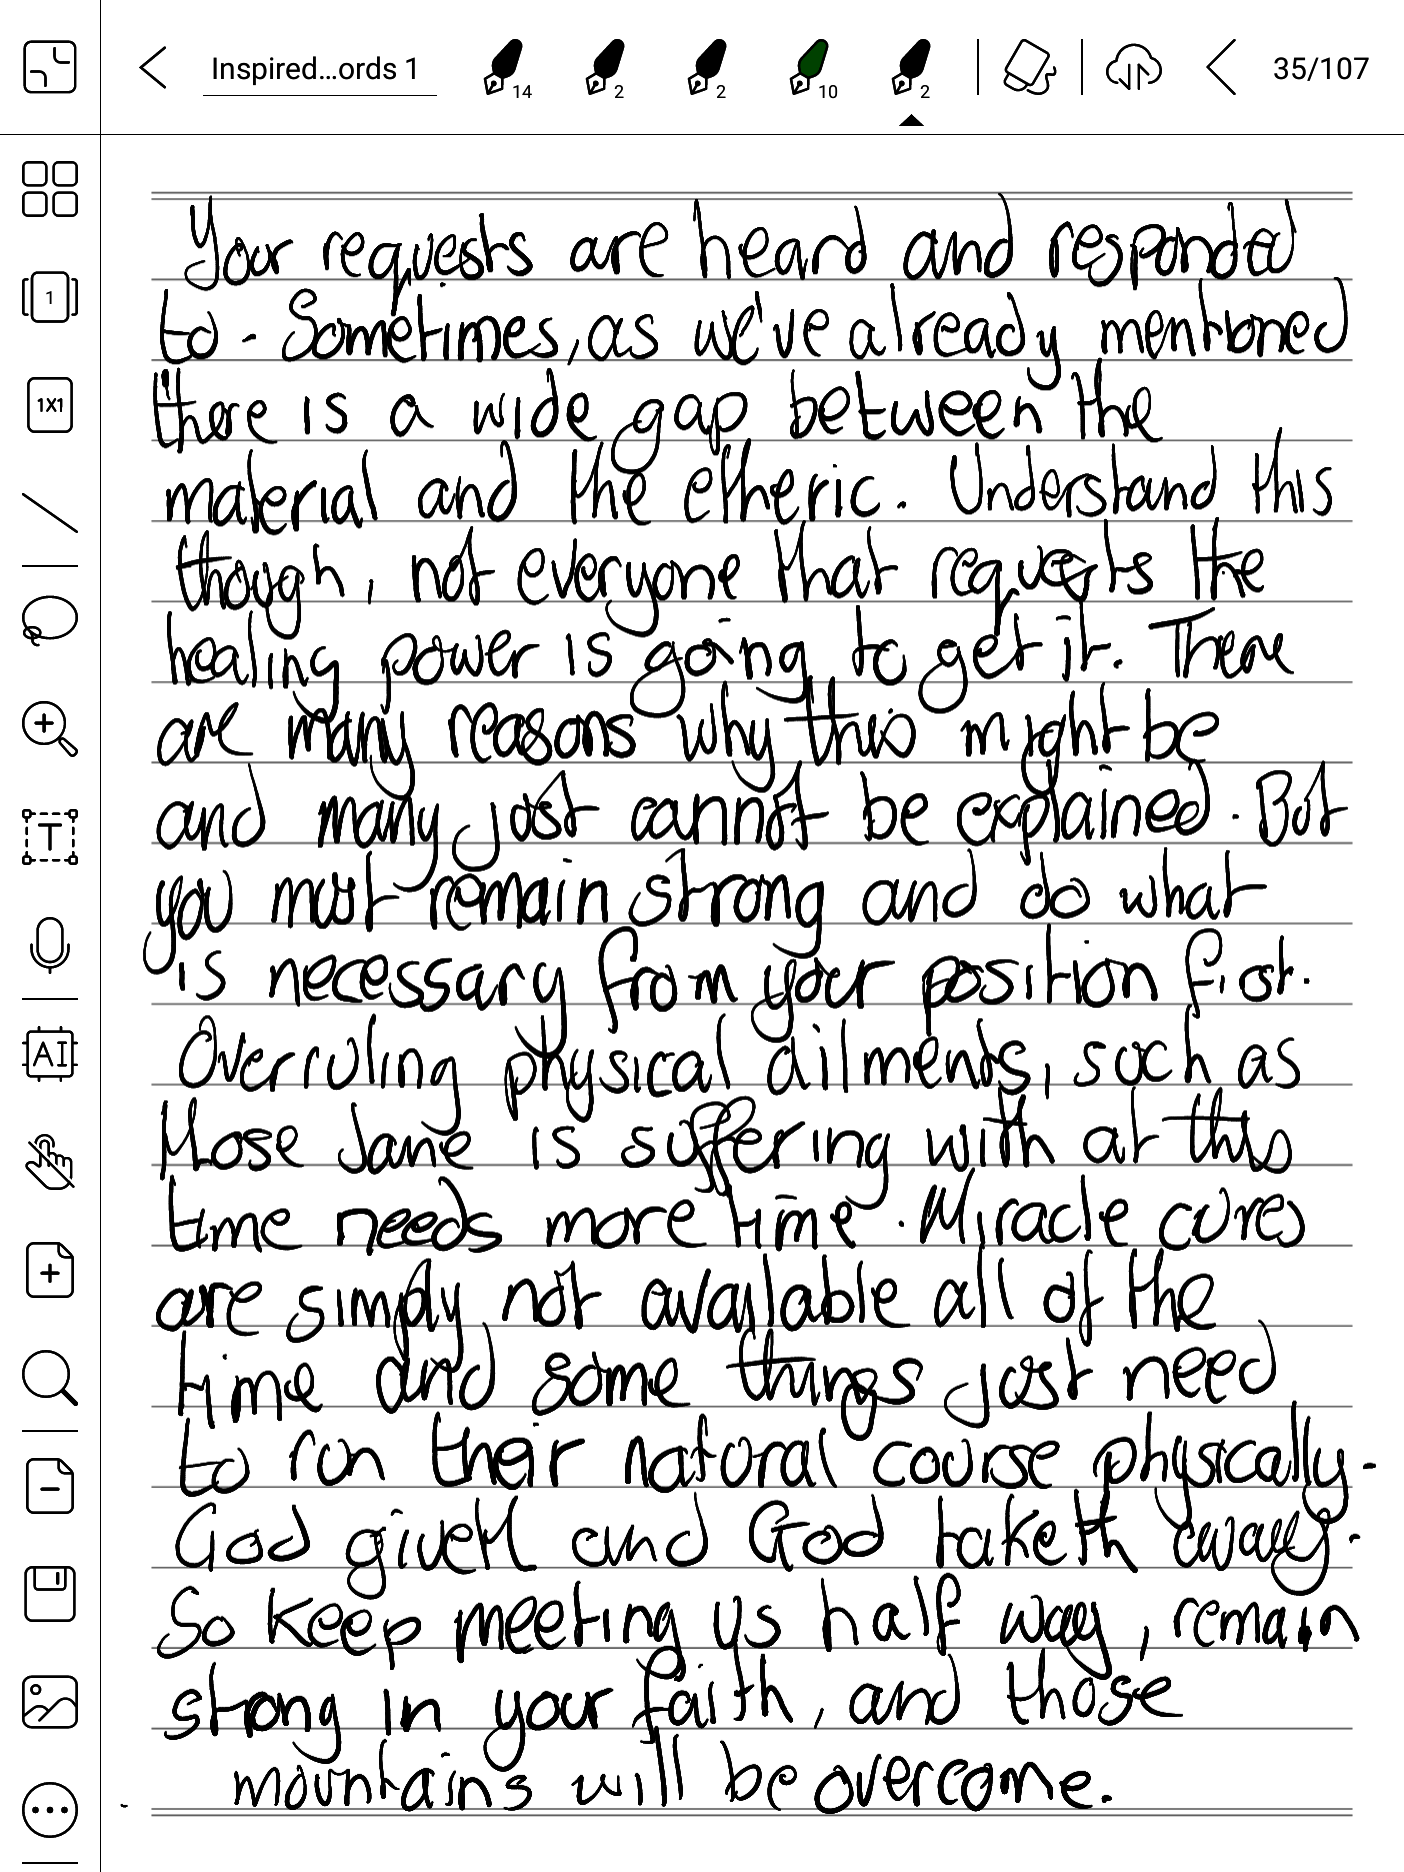 Inspired...ords 1
14
2
2
10
2
35/107
1
1X1
T
AI
Your requests are heard and responded
to. Sometimes, as we've already mentioned
there is a wide gap between the
material and the etheric. Understand this
though, not everyone that requests the
healing power is going to get it. There
are many reasons why this might be
and many just cannot be explained. But
you must remain strong and do what
is necessary from your position first.
Overruling physical ailments, such as
those Jane is suffering with at this
time needs more time. Miracle cures
are simply not available all of the
time and some things just need
to run their natural course physically.
God giveth and God taketh away.
So keep meeting us half way, remain
strong in your faith, and those
mountains will be overcome.